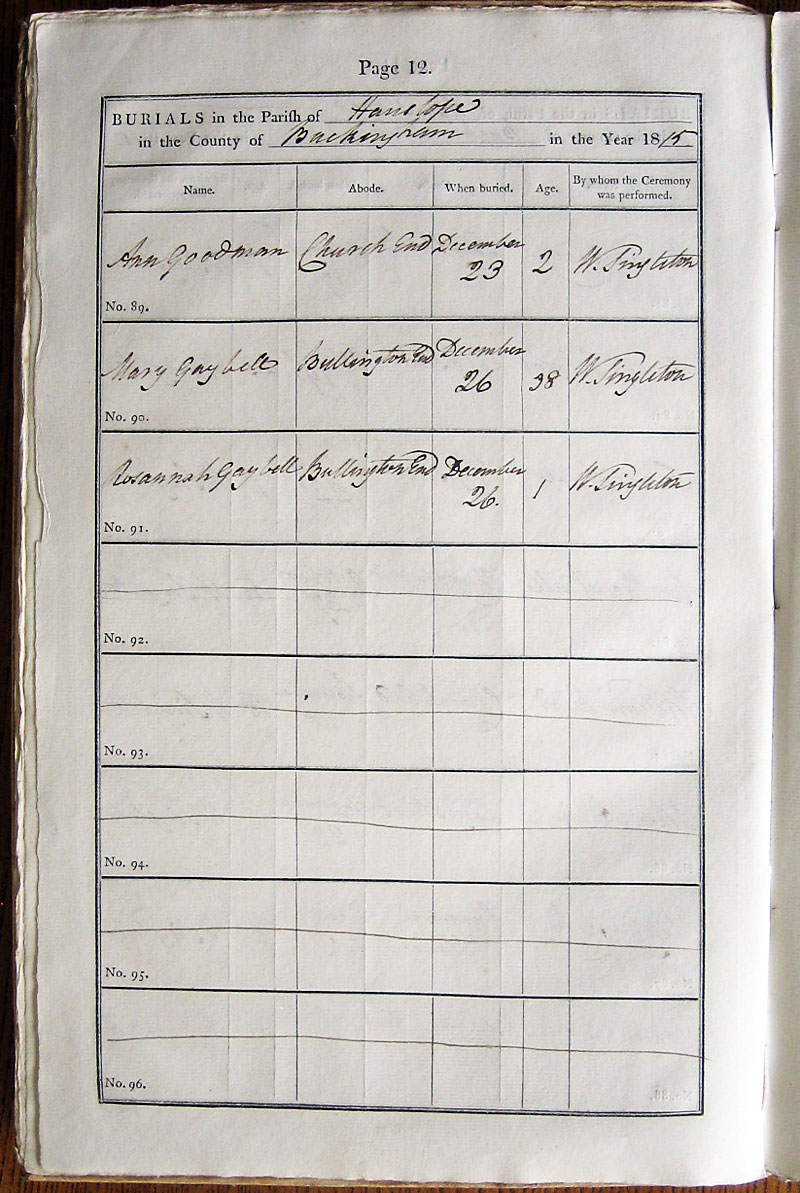 Page 12.
BURIALS in the Parish of Hanslope
in the County of Buckingham in the Year 1815
Name. Abode. When buried. Age. By whom the Ceremony was performed.
Ann Goodman Church End December 23 2 W. Singleton
No. 89.
Mary Gaybell Bullington End December 26 38 W. Singleton
No. 90.
Rosannah Gaybell Bullington End December 26. 1 W. Singleton
No. 91.
No. 92.
No. 93.
No. 94.
No. 95.
No. 96.